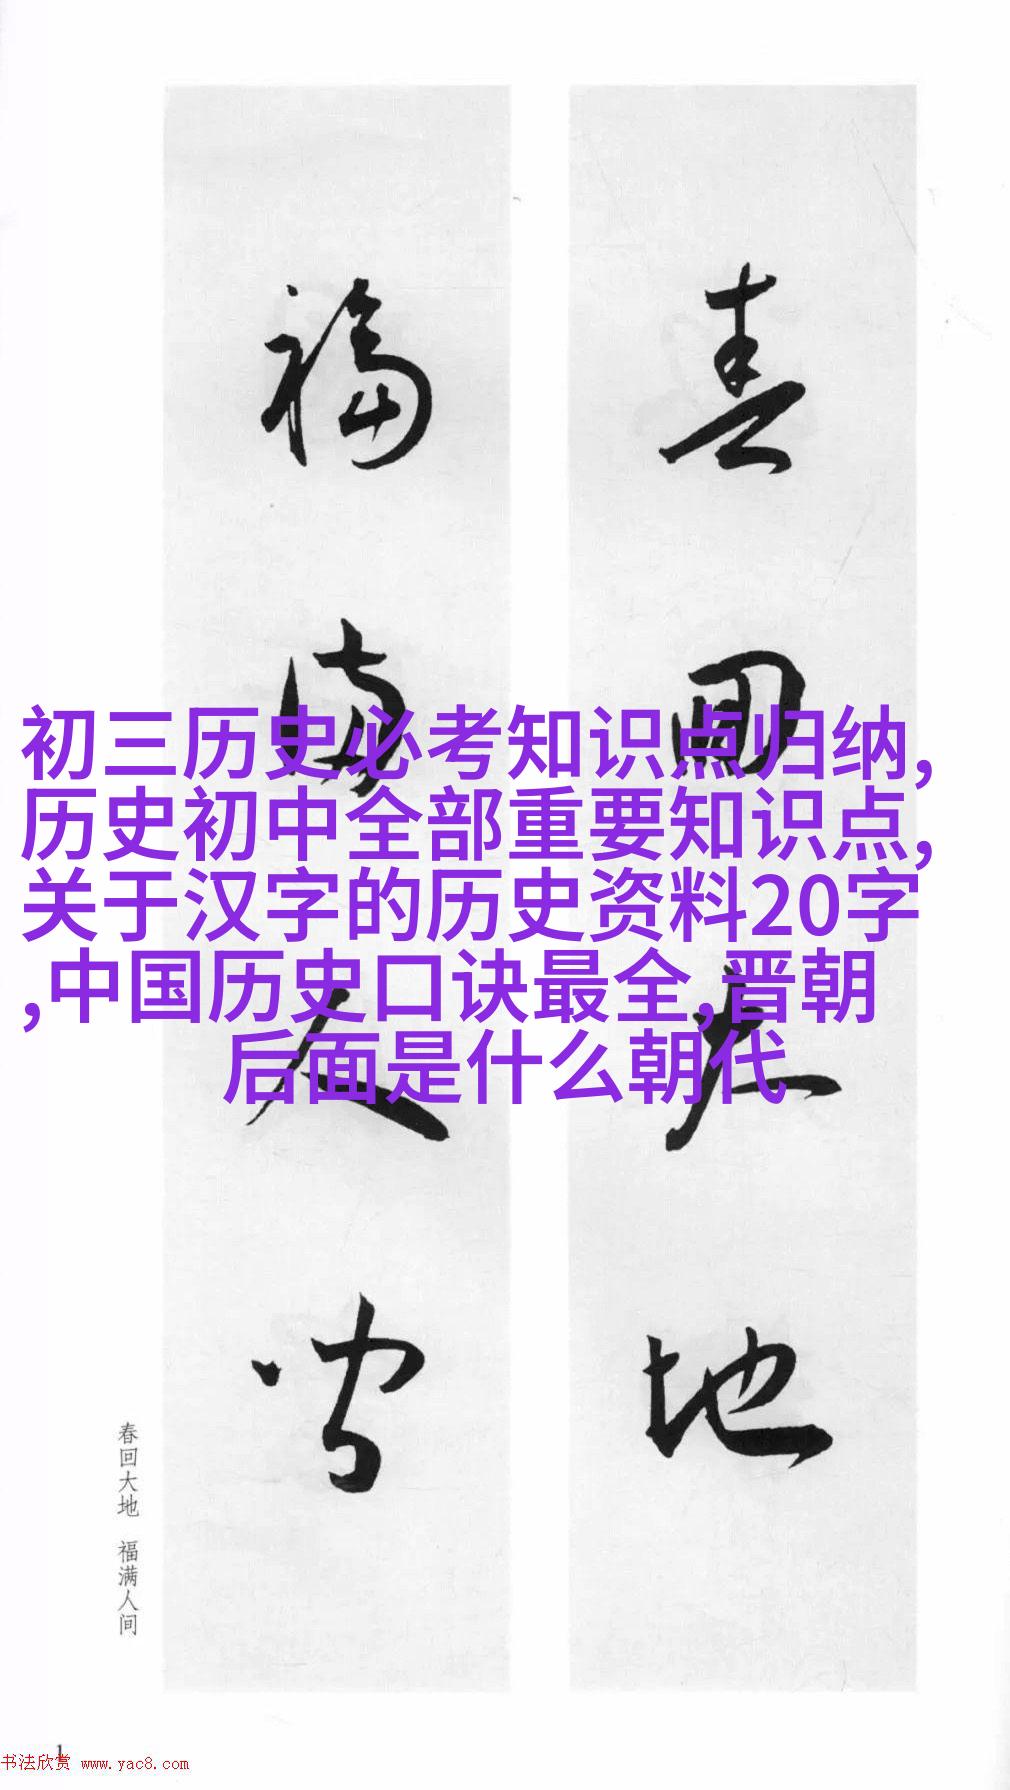 春回大地
福满人间
初三历史必考知识点归纳,
历史初中全部重要知识点,
关于汉字的历史资料20字
,中国历史口诀最全,晋朝
后面是什么朝代
春回大地 福满人间
1
书法欣赏 www.yac8.com